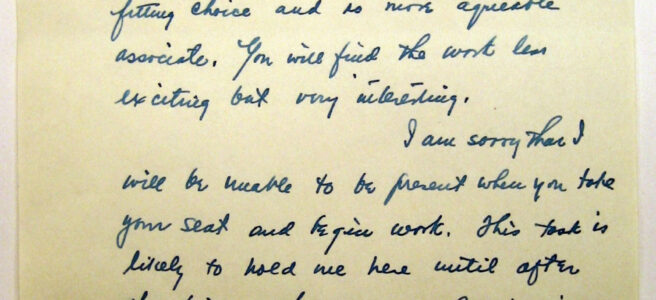 fitting choice and no more agreeable
associate. You will find the work less
exciting but very interesting.
I am sorry that I
will be unable to be present when you take
your seat and begin work. This task is
likely to hold me here until after